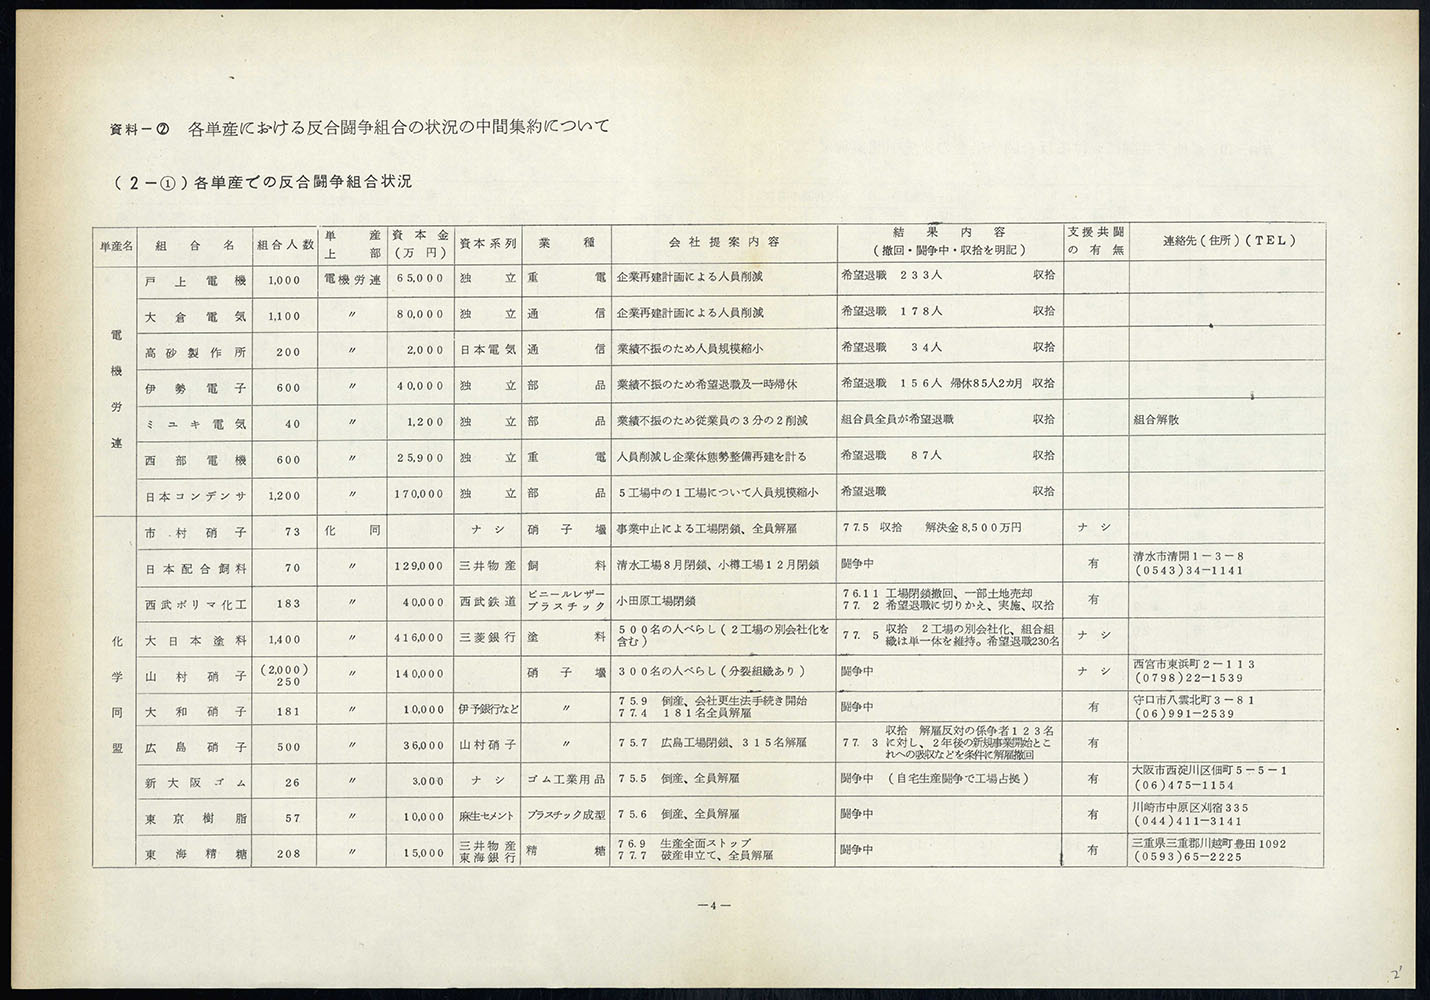 資料ー② 各単産における反合闘争組合の状況の中間集約について
(2ー①)各単産での反合闘争組合状況
単産名 組合名 組合人数 単産上部 資本金(万円) 資本系列 業種 会社提案内容 結果内容(撤回・闘争中・収拾を明記) 支援共闘の有無 連絡先(住所)(TEL)
電機労連
戸上電機 1,000 電機労連 65,000 独立 重電 企業再建計画による人員削減 希望退職 233人 収拾
大倉電気 1,100 〃 80,000 独立 通信 企業再建計画による人員削減 希望退職 178人 収拾
高砂製作所 200 〃 2,000 日本電気 通信 業績不振のため人員規模縮小 希望退職 34人 収拾
伊勢電子 600 〃 40,000 独立 部品 業績不振のため希望退職及一時帰休 希望退職 156人 帰休85人2カ月 収拾
ミユキ電気 40 〃 1,200 独立 部品 業績不振のため従業員の3分の2削減 組合員全員が希望退職 収拾 組合解散
西部電機 600 〃 25,900 独立 重電 人員削減し企業体態勢整備再建を計る 希望退職 87人 収拾
日本コンデンサ 1,200 〃 170,000 独立 部品 5工場中の1工場について人員規模縮小 希望退職 収拾
化学同盟
市村硝子 73 化同 ナシ 硝子壜 事業中止による工場閉鎖、全員解雇 77.5 収拾 解決金8,500万円 ナシ
日本配合飼料 70 〃 129,000 三井物産 飼料 清水工場8月閉鎖、小樽工場12月閉鎖 闘争中 有 清水市清開1-3-8
(0543)34-1141
西武ポリマ化工 183 〃 40,000 西武鉄道 ビニールレザー
プラスチック 小田原工場閉鎖 76.11 工場閉鎖撤回、一部土地売却
77.2 希望退職に切りかえ、実施、収拾 有
大日本塗料 1,400 〃 416,000 三菱銀行 塗料 500名の人べらし(2工場の別会社化を
含む) 77.5 収拾 2工場の別会社化、組合組
織は単一体を維持。希望退職230名 ナシ
山村硝子 (2,000)
250 〃 140,000 硝子壜 300名の人べらし(分裂組織あり) 闘争中 ナシ 西宮市東浜町2-113
(0798)22-1539
大和硝子 181 〃 10,000 伊予銀行など 〃 75.9 倒産、会社更生法手続き開始
77.4 181名全員解雇 闘争中 有 守口市八雲北町3-81
(06)991-2539
広島硝子 500 〃 36,000 山村硝子 〃 75.7 広島工場閉鎖、315名解雇 77.3 収拾 解雇反対の係争者123名
に対し、2年後の新規事業開始とこ
れへの吸収などを条件に解雇撤回 有
新大阪ゴム 26 〃 3,000 ナシ ゴム工業用品 75.5 倒産、全員解雇 闘争中 (自宅生産闘争で工場占拠) 有 大阪市西淀川区佃町5-5-1
(06)475-1154
東京樹脂 57 〃 10,000 麻生セメント プラスチック成型 75.6 倒産、全員解雇 闘争中 有 川崎市中原区刈宿335
(044)411-3141
東海精糖 208 〃 15,000 三井物産
東海銀行 精糖 76.9 生産全面ストップ
77.7 破産申立て、全員解雇 闘争中 有 三重県三重郡川越町豊田1092
(0593)65-2225
ー4ー
2'